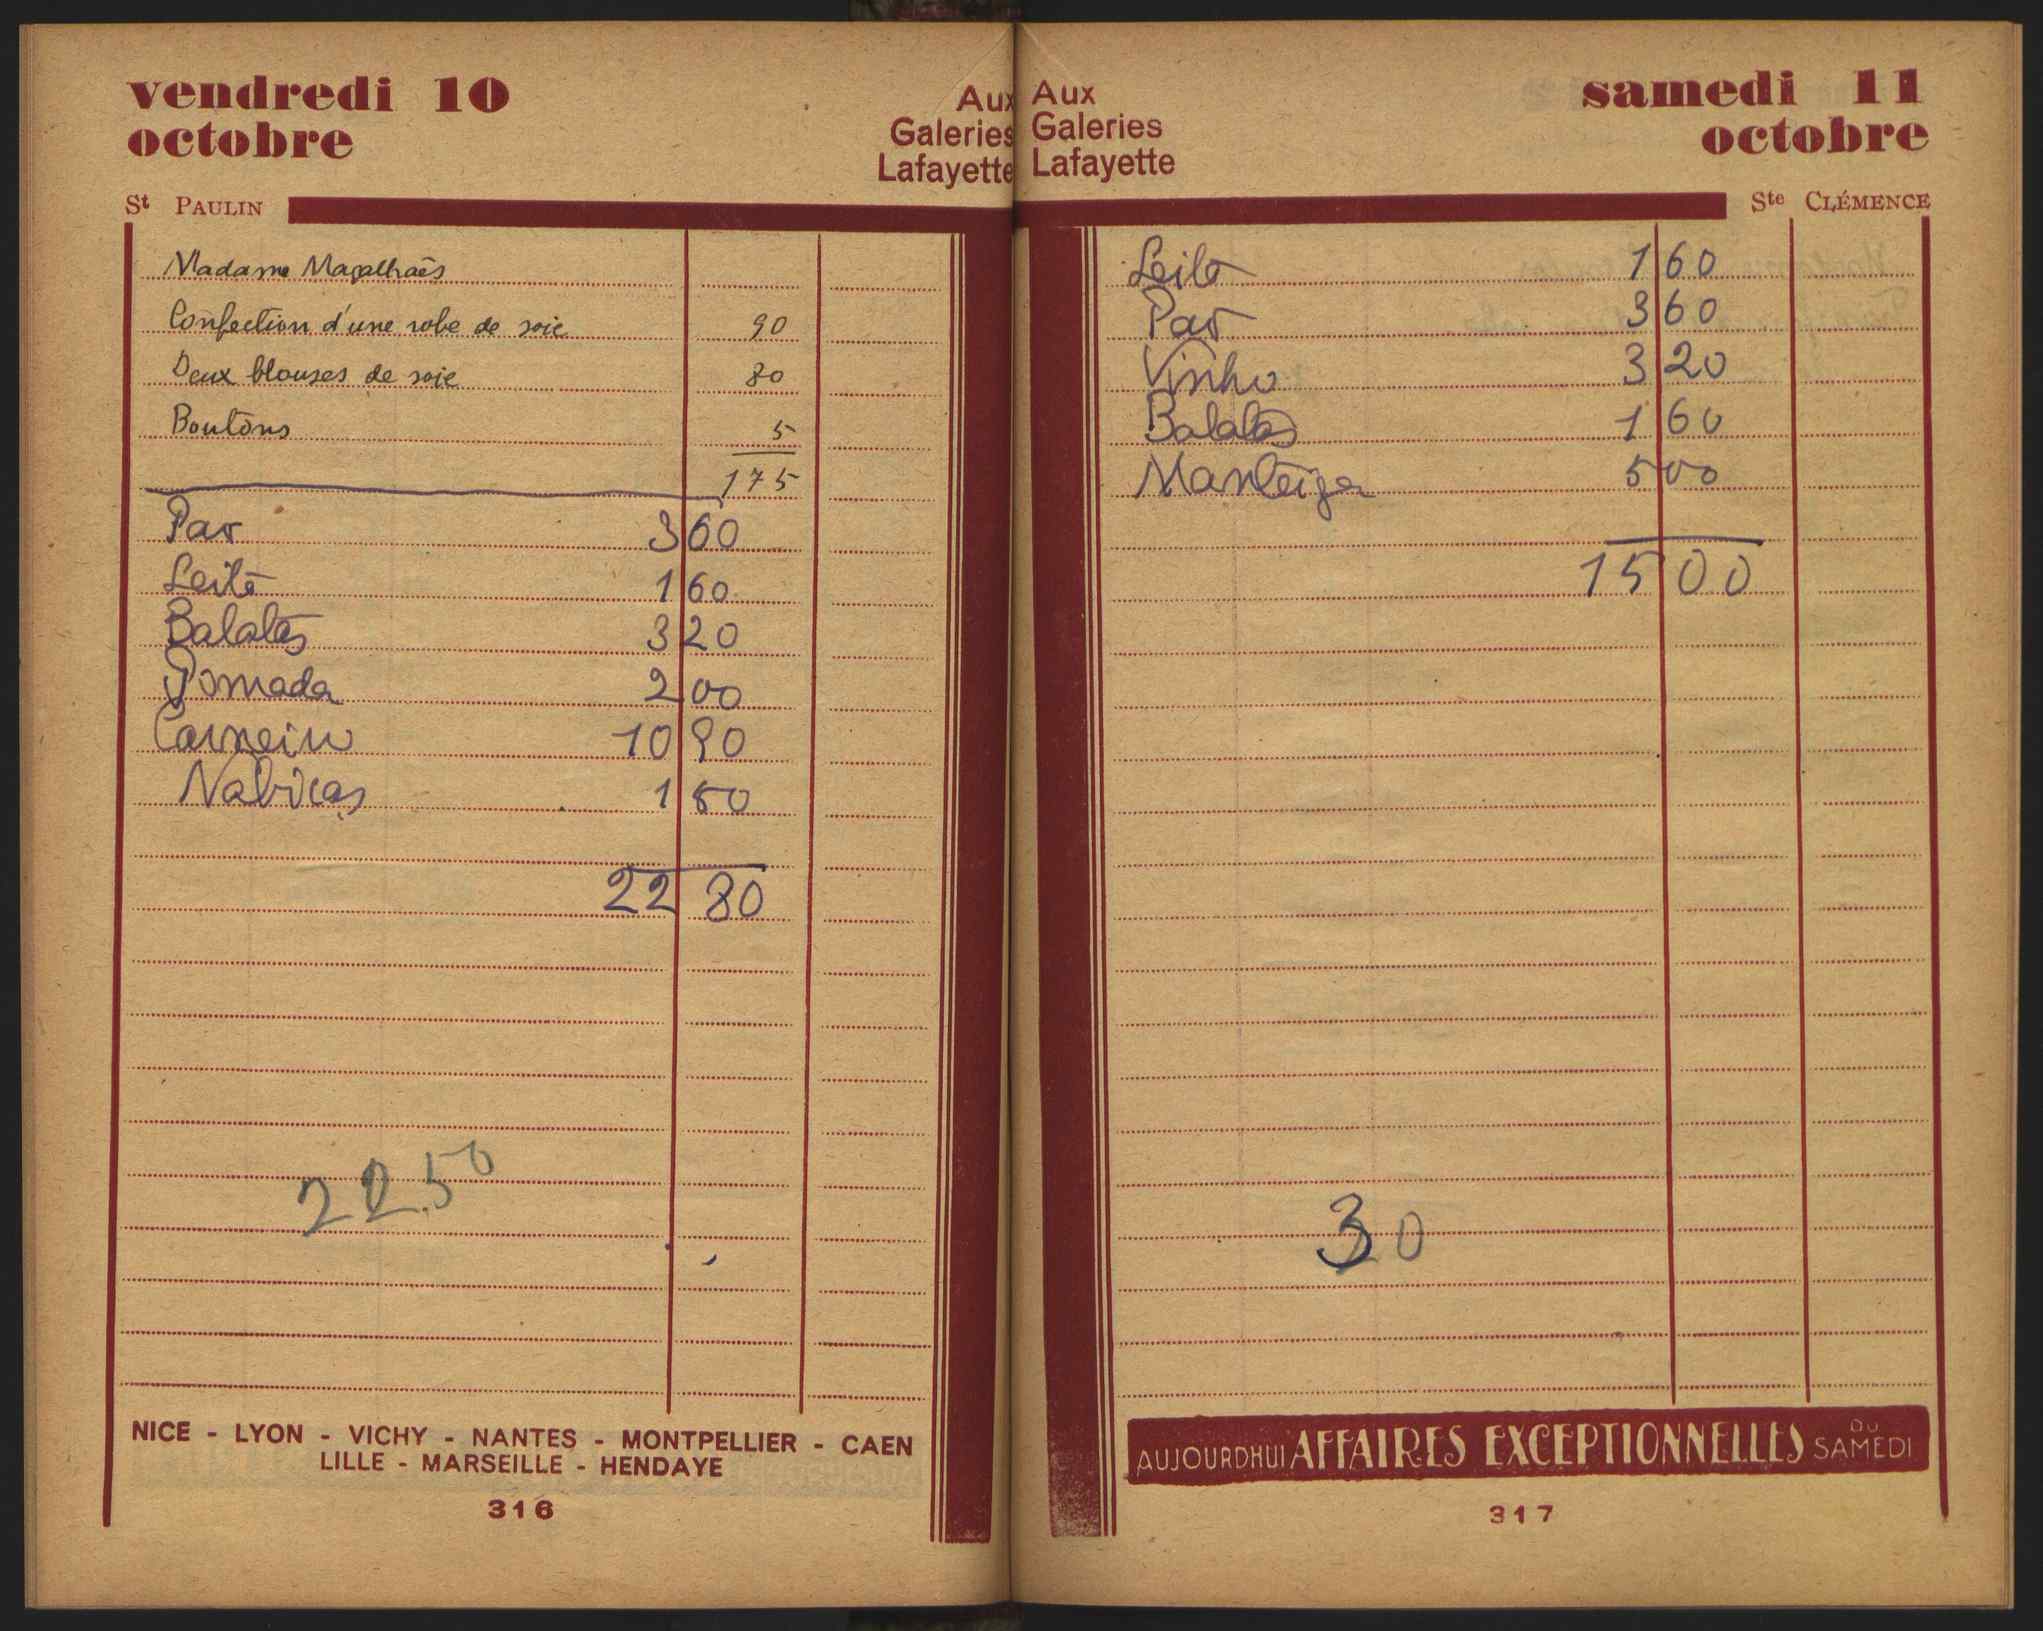 vendredi 10
octobre
Aux
Galeries
Lafayette
St PAULIN
Madame Magalhaês
Confection d'une robe de soie 90
Deux blouses de soie 80
Boutons 5
175
Pao 3 60
Leite 1 60
Batatas 3 20
Pomada 2 00
Carneiro 10 90
Nabiças 1 50
22 80
22.50
NICE - LYON - VICHY - NANTES - MONTPELLIER - CAEN
LILLE - MARSEILLE - HENDAYE
316
Aux
Galeries
Lafayette
samedi 11
octobre
Ste CLÉMENCE
Leite 1 60
Pao 3 60
Vinho 3 20
Batatas 1 60
Manteiga 5 00
15 00
30
AUJOURDHUI AFFAIRES EXCEPTIONNELLES DU SAMEDI
317